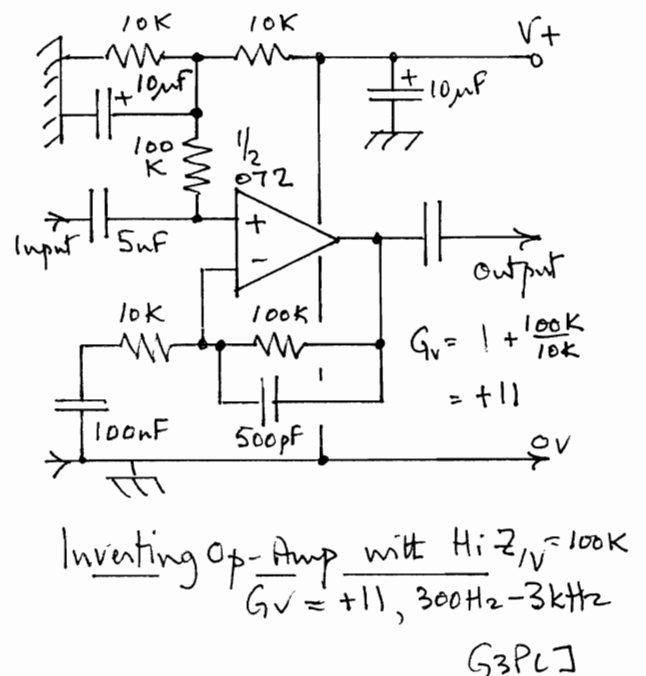 10K
10K
V+
+ 10µF
+ 10µF
100
K
1/2
072
+
-
Input
5nF
Output
10K
100K
Gv = 1 + 100K/10K
= +11
100nF
500pF
0V
Inverting Op-Amp with Hi Z/N = 100K
Gv = +11, 300Hz-3kHz
G3PLJ